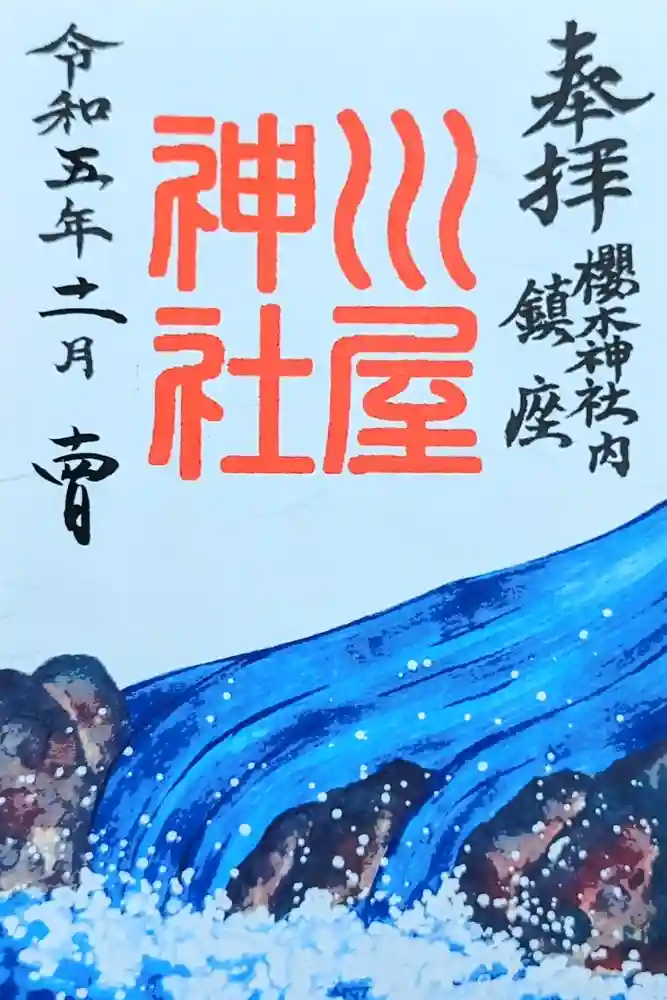 奉拝
櫻木神社内
鎮座
川屋
神社
令和五年十一月